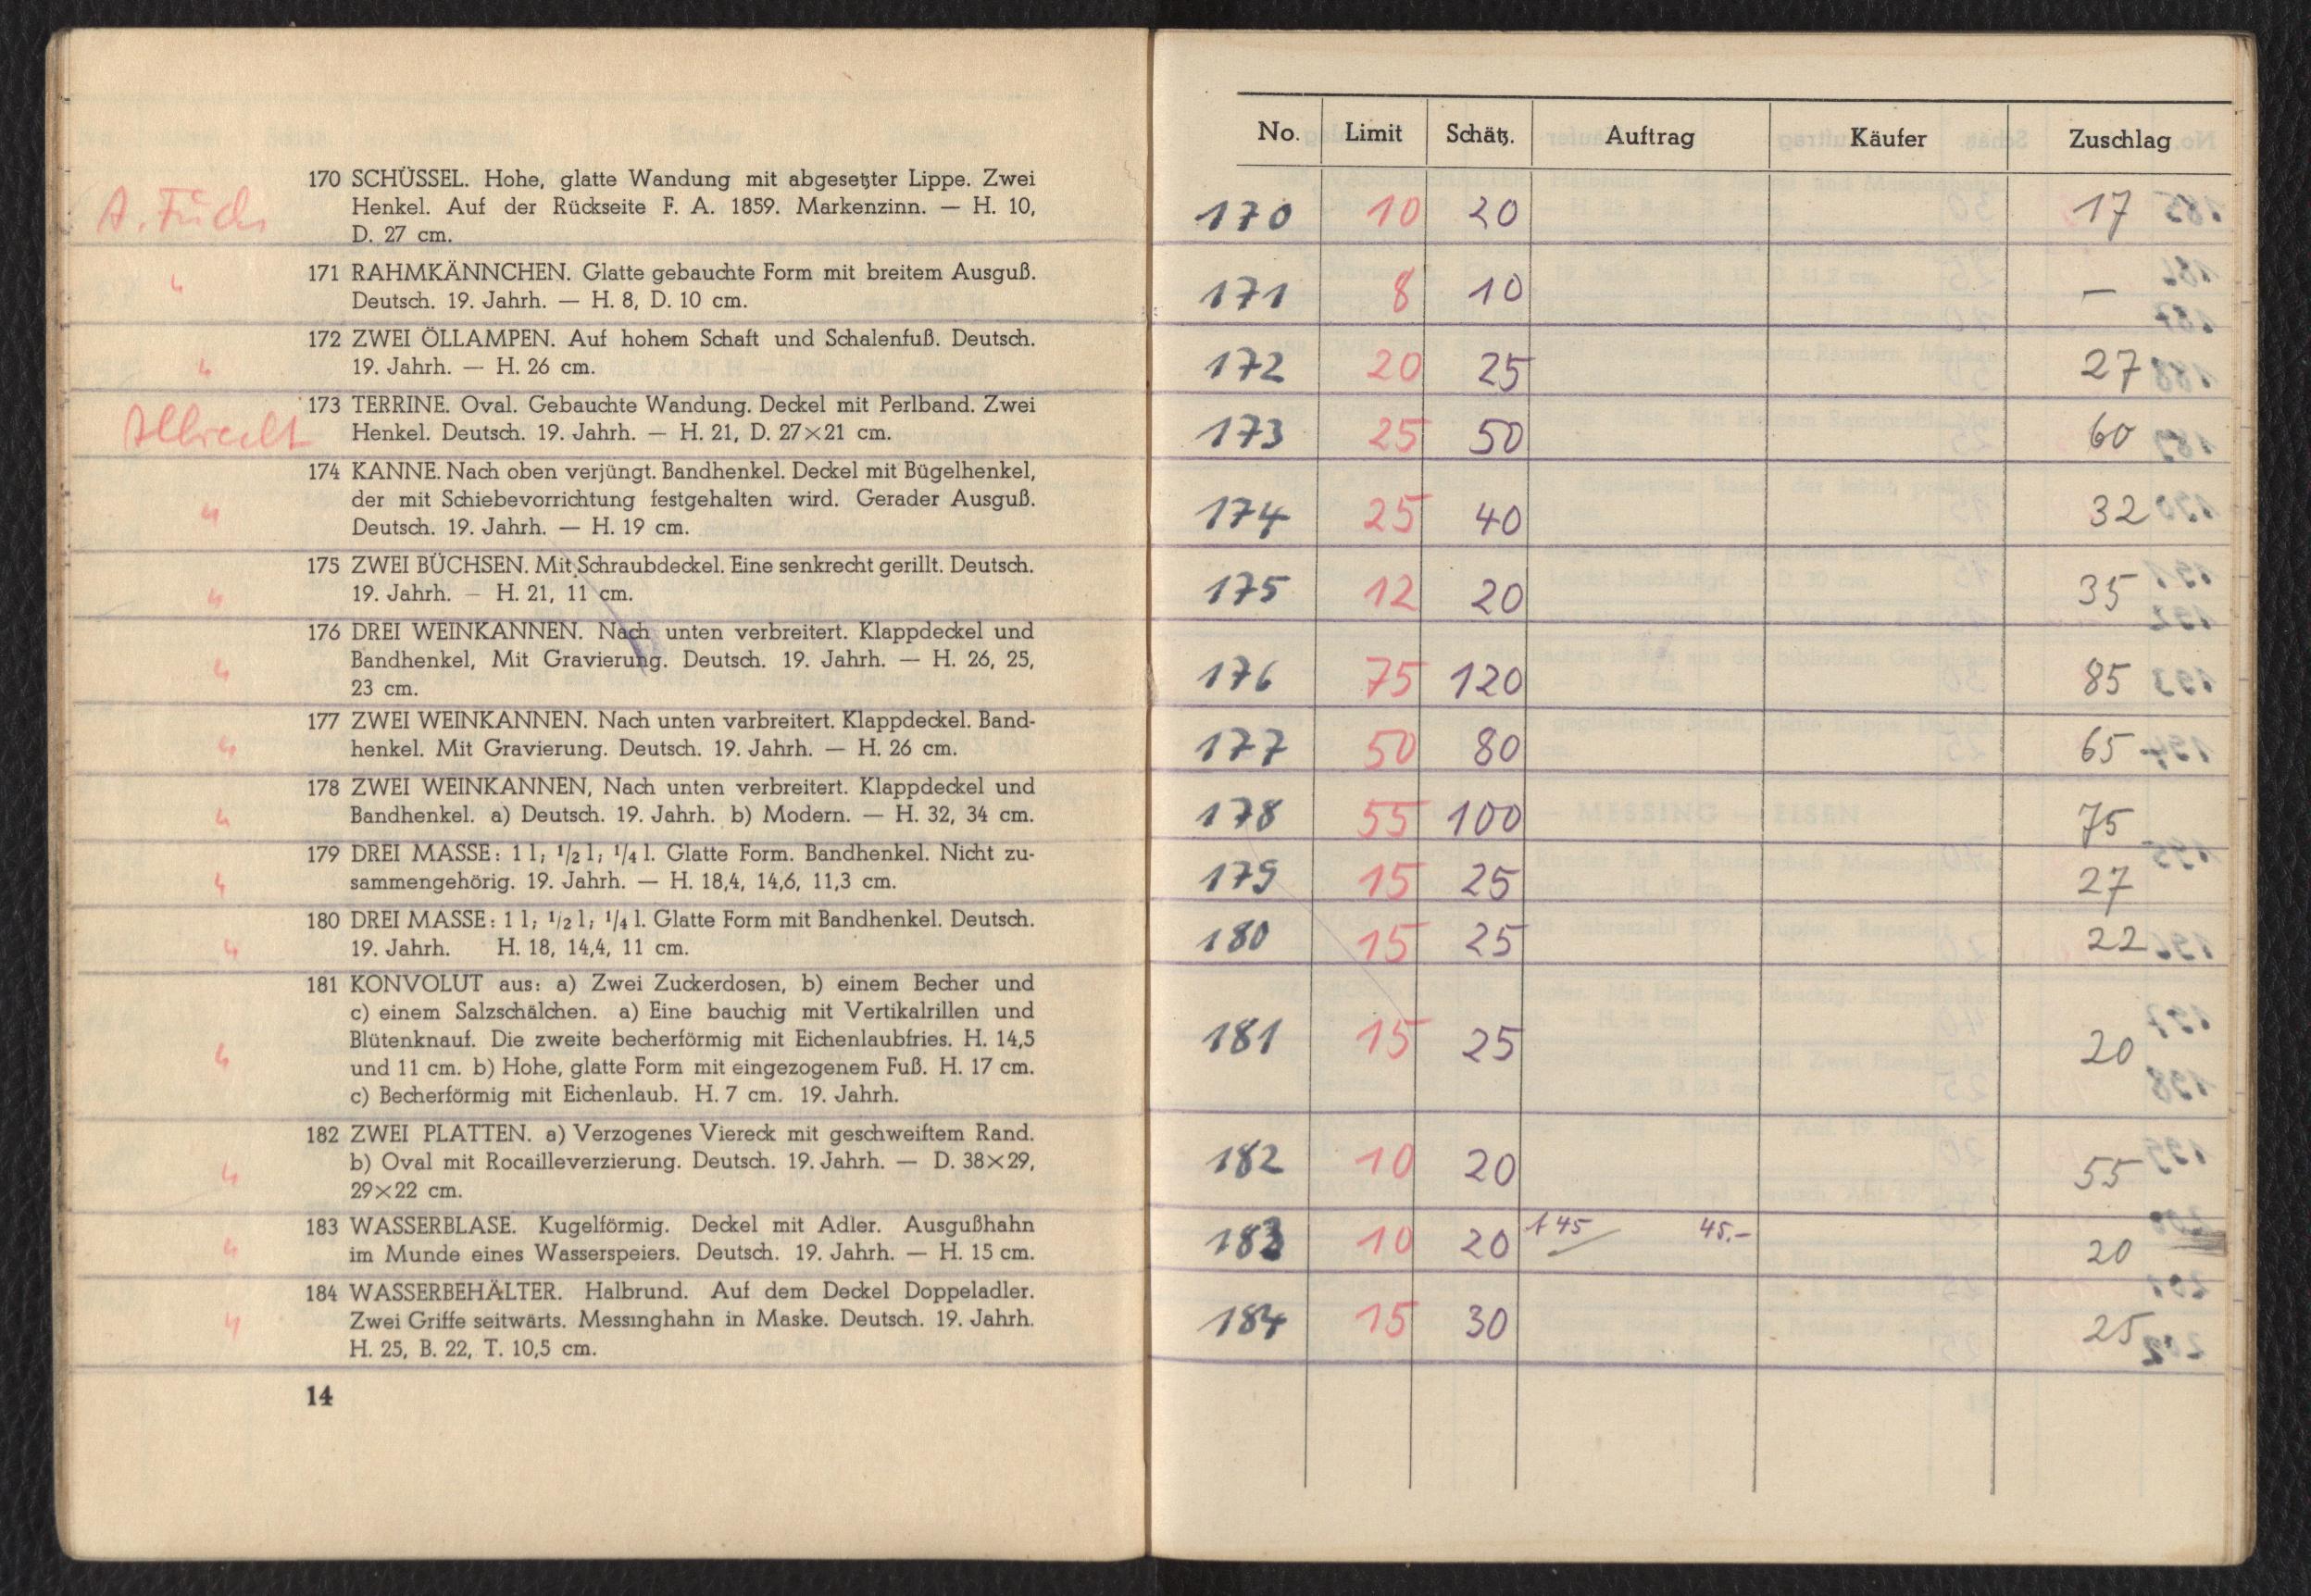 170 SCHÜSSEL. Hohe, glatte Wandung mit abgesetzter Lippe. Zwei
A. Fuchs
Henkel. Auf der Rückseite F. A. 1859. Markenzinn. — H. 10,
D. 27 cm.
171 RAHMKÄNNCHEN. Glatte gebauchte Form mit breitem Ausguß.
"
Deutsch. 19. Jahrh. — H. 8, D. 10 cm.
172 ZWEI ÖLLAMPEN. Auf hohem Schaft und Schalenfuß. Deutsch.
"
19. Jahrh. — H. 26 cm.
173 TERRINE. Oval. Gebauchte Wandung. Deckel mit Perlband. Zwei
Albrecht
Henkel. Deutsch. 19. Jahrh. — H. 21, D. 27×21 cm.
174 KANNE. Nach oben verjüngt. Bandhenkel. Deckel mit Bügelhenkel,
der mit Schiebevorrichtung festgehalten wird. Gerader Ausguß.
"
Deutsch. 19. Jahrh. — H. 19 cm.
175 ZWEI BÜCHSEN. Mit Schraubdeckel. Eine senkrecht gerillt. Deutsch.
"
19. Jahrh. — H. 21, 11 cm.
176 DREI WEINKANNEN. Nach unten verbreitert. Klappdeckel und
"
Bandhenkel, Mit Gravierung. Deutsch. 19. Jahrh. — H. 26, 25,
23 cm.
177 ZWEI WEINKANNEN. Nach unten varbreitert. Klappdeckel. Band-
"
henkel. Mit Gravierung. Deutsch. 19. Jahrh. — H. 26 cm.
178 ZWEI WEINKANNEN, Nach unten verbreitert. Klappdeckel und
"
Bandhenkel. a) Deutsch. 19. Jahrh. b) Modern. — H. 32, 34 cm.
179 DREI MASSE: 1 l; 1/2 l; 1/4 l. Glatte Form. Bandhenkel. Nicht zu-
"
sammengehörig. 19. Jahrh. — H. 18,4, 14,6, 11,3 cm.
180 DREI MASSE: 1 l; 1/2 l; 1/4 l. Glatte Form mit Bandhenkel. Deutsch.
"
19. Jahrh. H. 18, 14,4, 11 cm.
181 KONVOLUT aus: a) Zwei Zuckerdosen, b) einem Becher und
c) einem Salzschälchen. a) Eine bauchig mit Vertikalrillen und
Blütenknauf. Die zweite becherförmig mit Eichenlaubfries. H. 14,5
"
und 11 cm. b) Hohe, glatte Form mit eingezogenem Fuß. H. 17 cm.
c) Becherförmig mit Eichenlaub. H. 7 cm. 19. Jahrh.
182 ZWEI PLATTEN. a) Verzogenes Viereck mit geschweiftem Rand.
"
b) Oval mit Rocailleverzierung. Deutsch. 19. Jahrh. — D. 38×29,
29×22 cm.
183 WASSERBLASE. Kugelförmig. Deckel mit Adler. Ausgußhahn
"
im Munde eines Wasserspeiers. Deutsch. 19. Jahrh. — H. 15 cm.
184 WASSERBEHÄLTER. Halbrund. Auf dem Deckel Doppeladler.
"
Zwei Griffe seitwärts. Messinghahn in Maske. Deutsch. 19. Jahrh.
H. 25, B. 22, T. 10,5 cm.
14
No. Limit Schätz. Auftrag Käufer Zuschlag
170 10 20 17
171 8 10 —
172 20 25 27
173 25 50 60
174 25 40 32
175 12 20 35
176 75 120 85
177 50 80 65
178 55 100 75
179 15 25 27
180 15 25 22
181 15 25 20
182 10 20 55
183 10 20 145 45.- 20
184 15 30 25